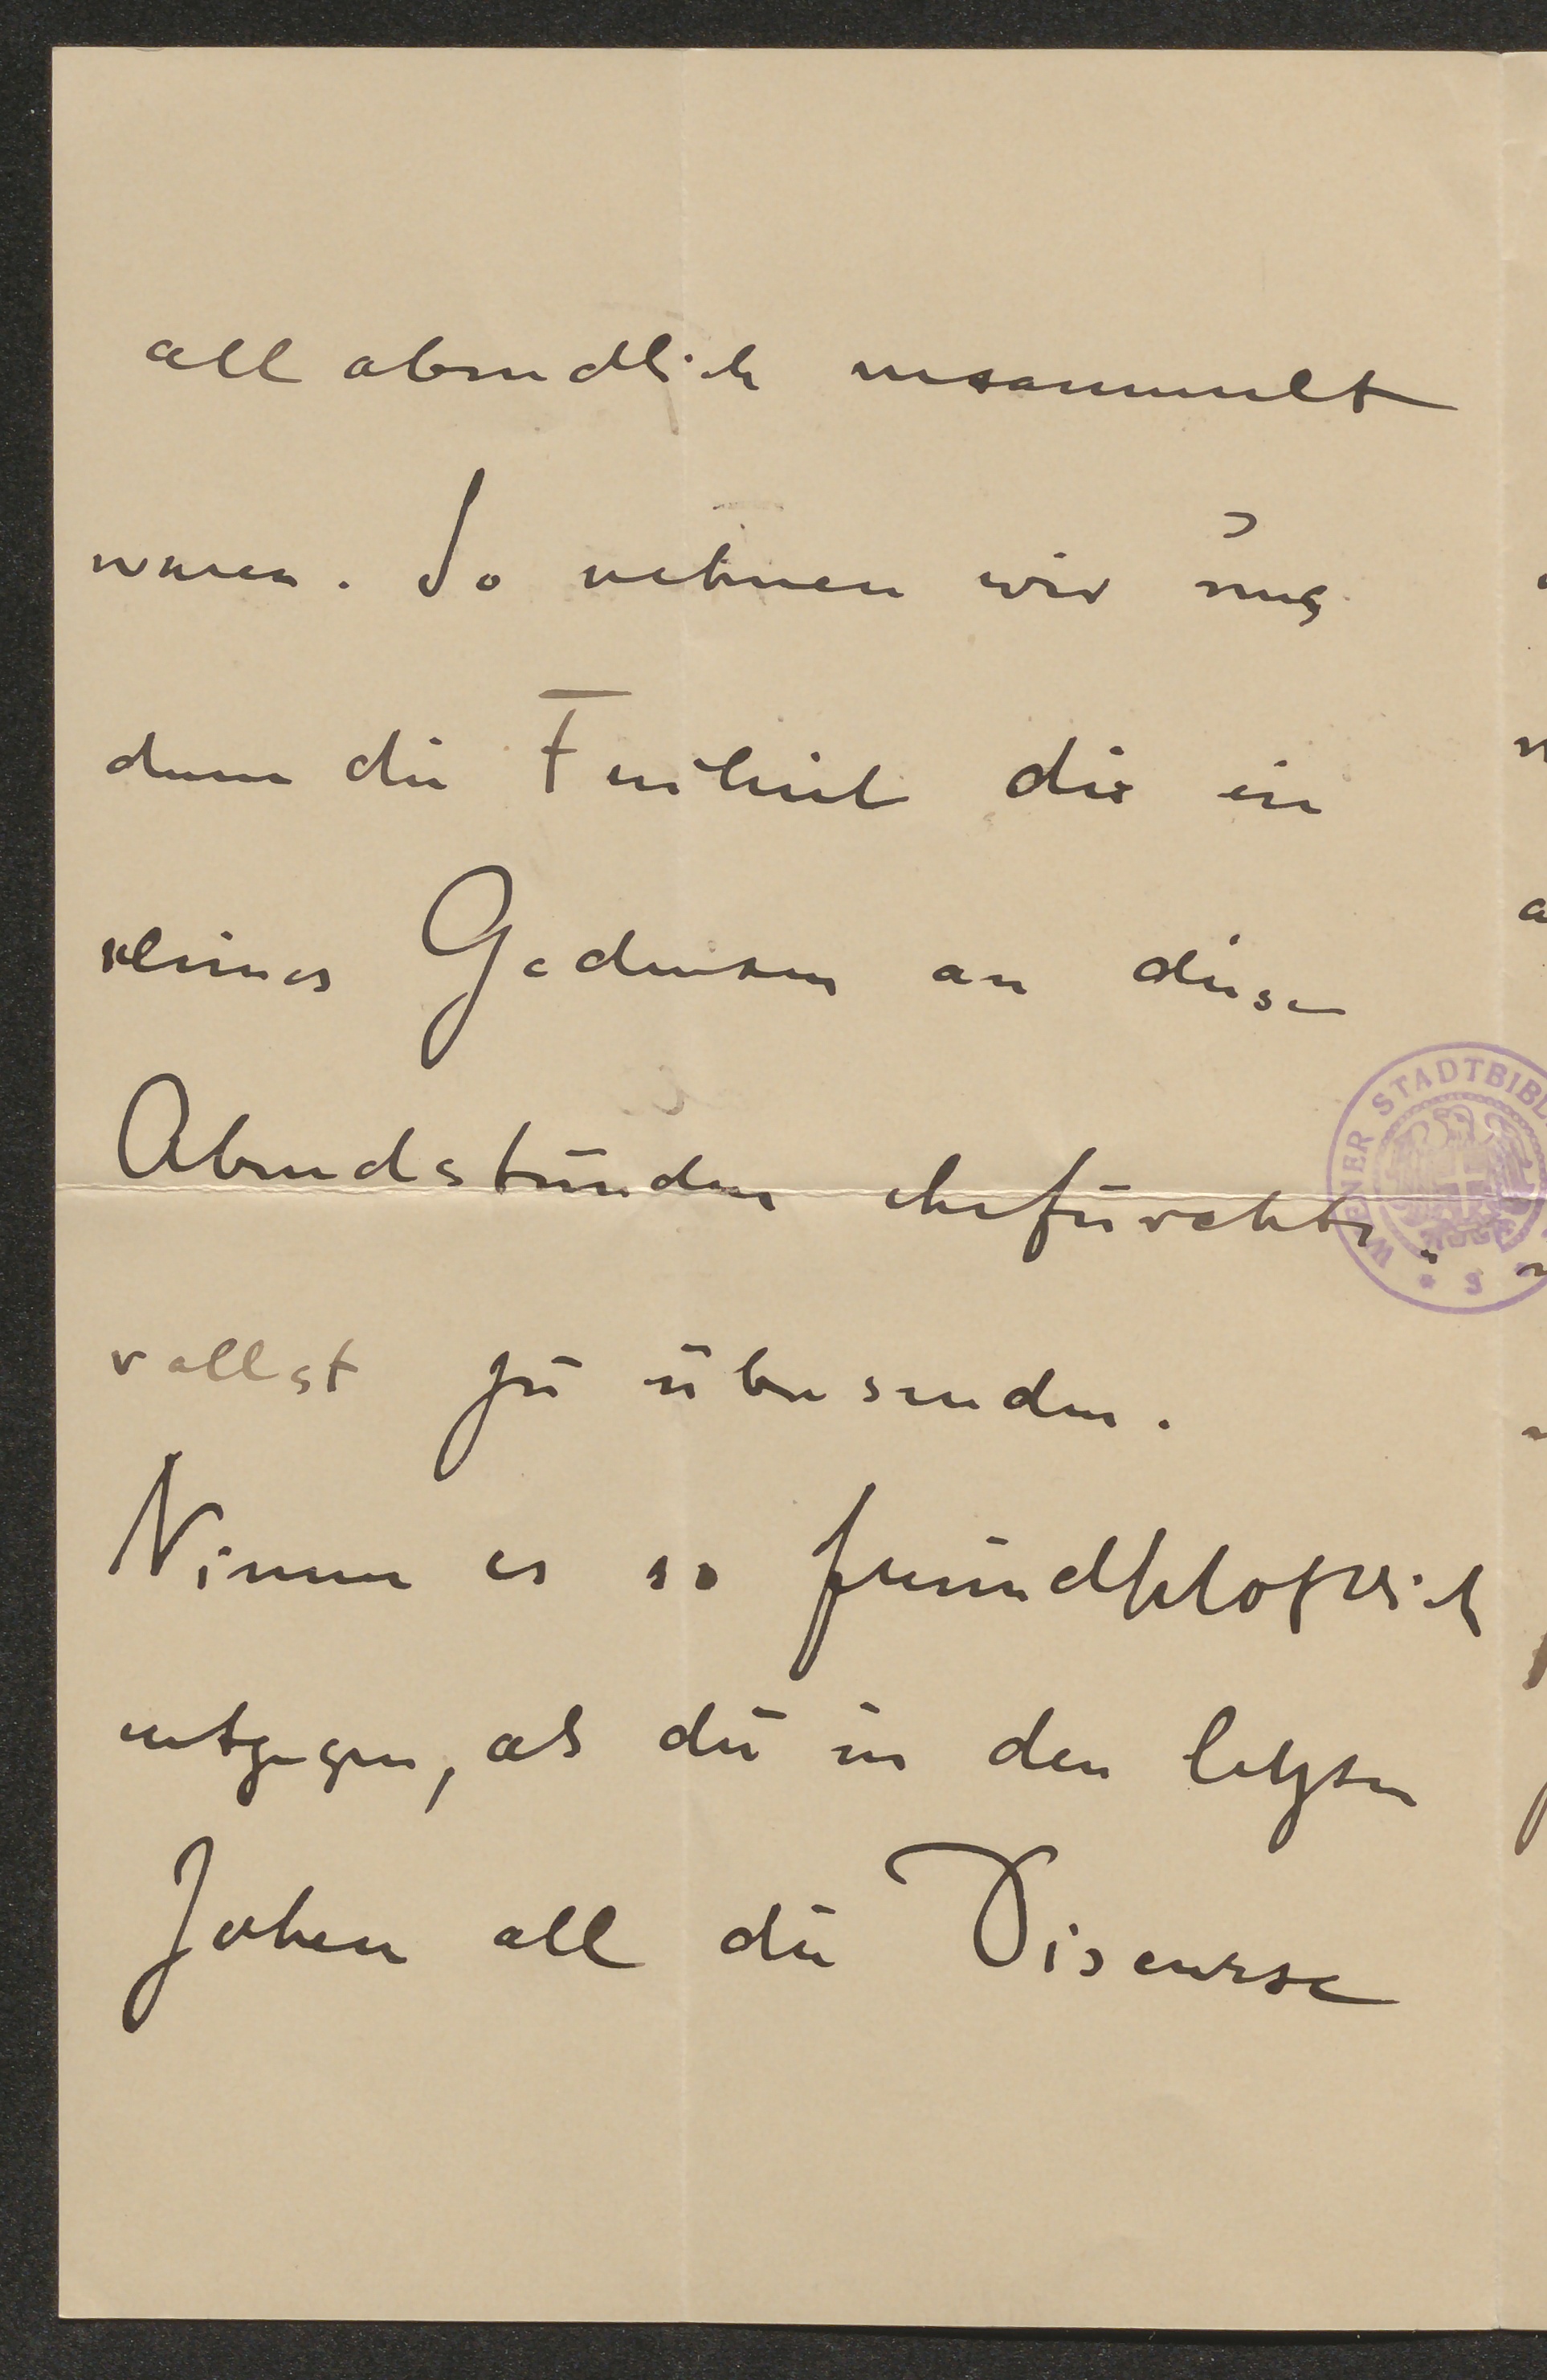 all abendlich versammelt
waren. So nehmen wir uns
denn die Freiheit dir ein
kleines Gedenken an diese
Abendstunden ehrfurchts-
vollst zu übersenden.
Nimm es so
entgegen, als du in den letzten
Jahren all die Discurse
WIENER STADTBIBL